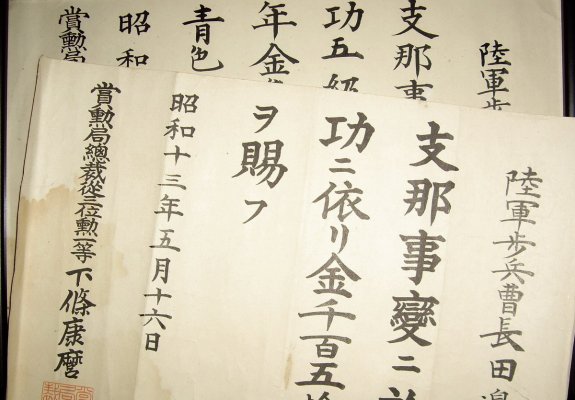 陸軍歩兵曹長田邉
支那事變ニ於
功ニ依リ金千百五拾
ヲ賜フ
昭和十三年五月十六日
賞勲局總裁從三位勲一等下條康麿
陸軍歩
支那事
功五級
年金
青色
昭和
賞勲局